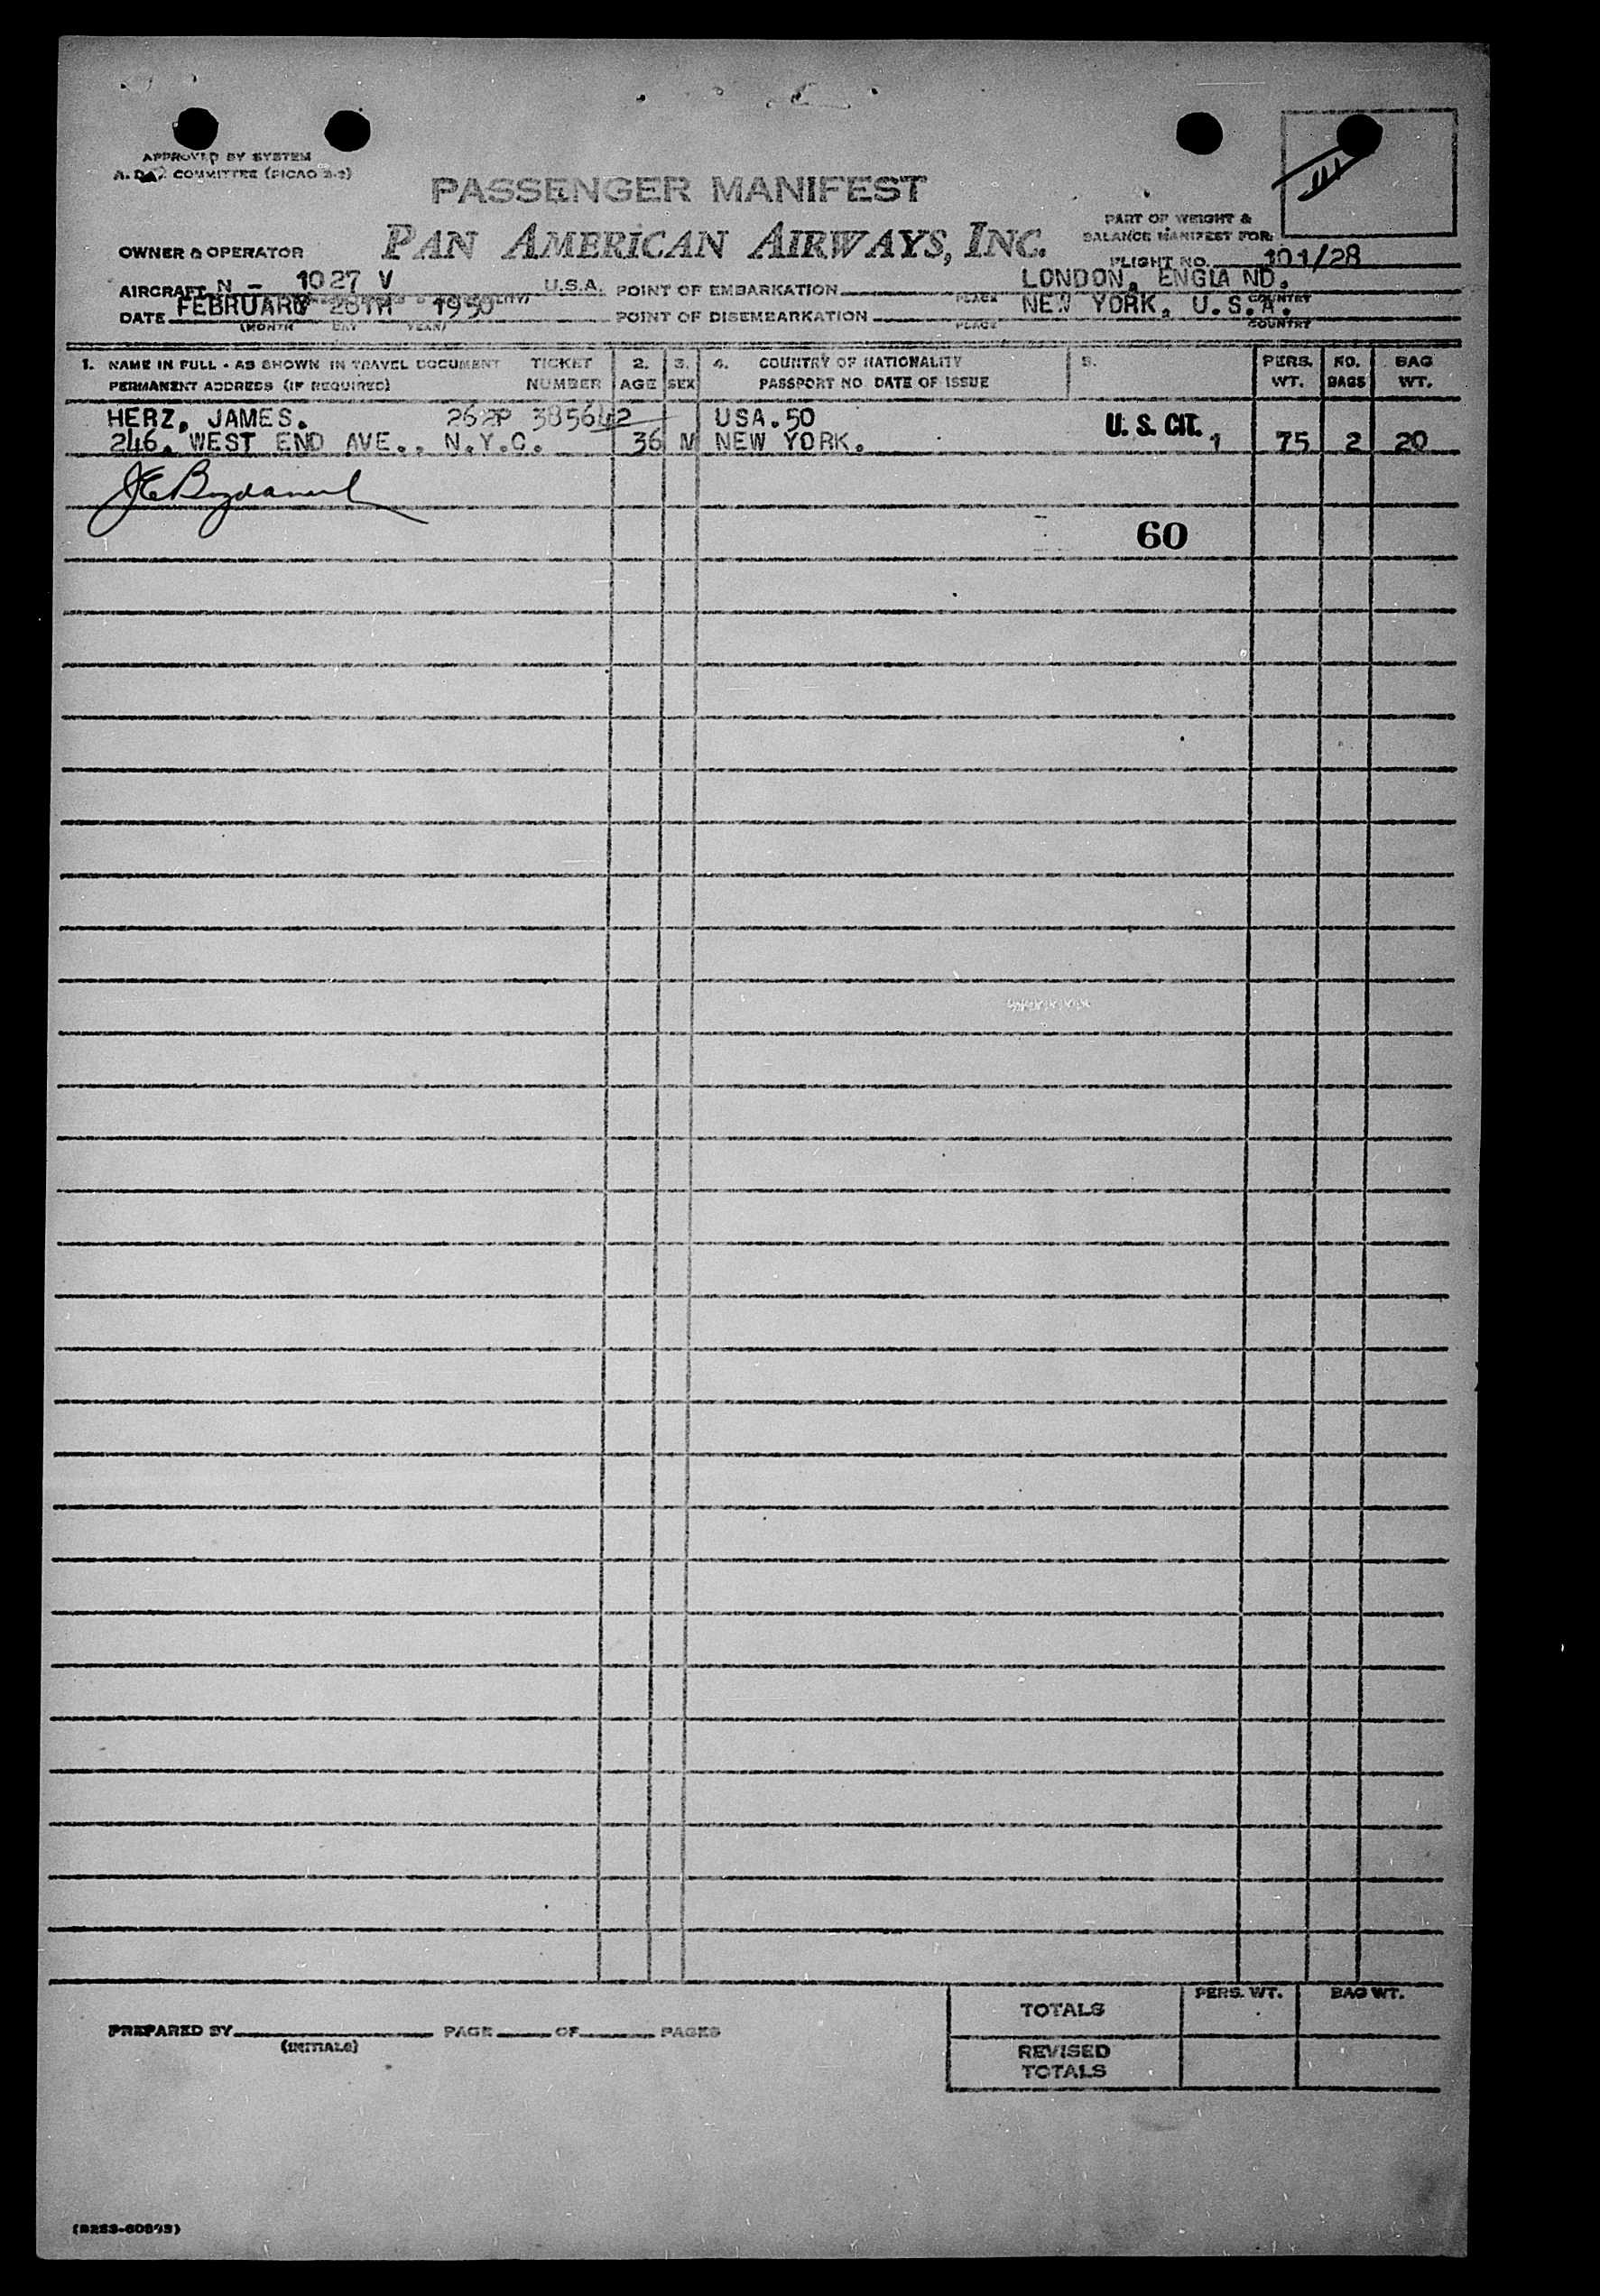 APPROVED BY SYSTEM
A. D. COMMITTEE (PICAO 2-2)
PASSENGER MANIFEST
PART OF WEIGHT &
BALANCE MANIFEST FOR:
OWNER & OPERATOR PAN AMERICAN AIRWAYS, INC.
FLIGHT NO. 101/28
AIRCRAFT N - 1027 V U.S.A. POINT OF EMBARKATION LONDON, ENGLA ND.
PLACE COUNTRY
DATE FEBRUARY 28TH 1950 POINT OF DISEMBARKATION NEW YORK, U.S.A.
(MONTH DAY YEAR) PLACE COUNTRY
1. NAME IN FULL - AS SHOWN IN TRAVEL DOCUMENT TICKET 2. 3. 4. COUNTRY OF NATIONALITY 5. PERS. NO. BAG
PERMANENT ADDRESS (IF REQUIRED) NUMBER AGE SEX PASSPORT NO. DATE OF ISSUE WT. BAGS WT.
HERZ, JAMES. 262P 385642 USA.50 U. S. CIT.
246. WEST END AVE., N.Y.C. 36 M NEW YORK. 1 75 2 20
60
TOTALS PERS. WT. BAG WT.
PREPARED BY PAGE OF PAGES
(INITIALS)
REVISED
TOTALS